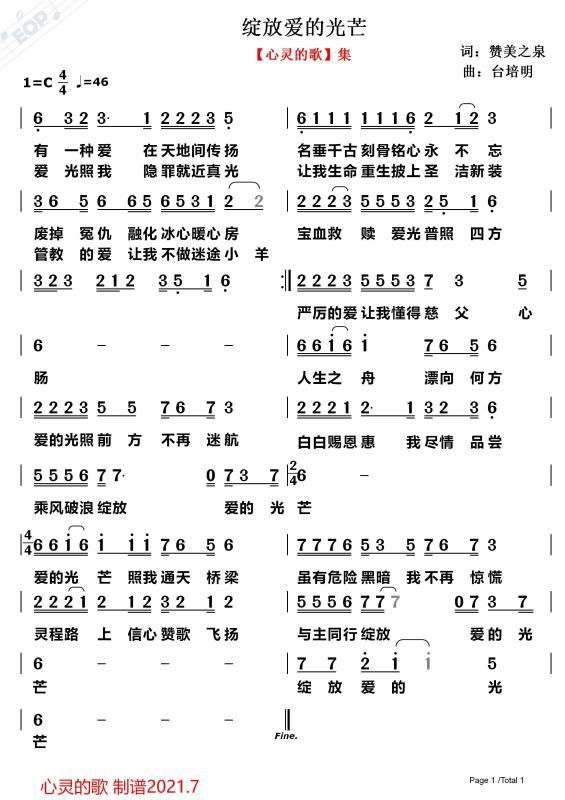 EOP
绽放爱的光芒
【心灵的歌】集
词：赞美之泉
曲：台培明
1=C 4/4 ♩=46
6 32 3· 1 2223 5 6111 1116 2 12 3
有 一种 爱 在 天地间传 扬 名垂千古 刻骨铭心 永 不 忘
爱 光照 我 隐 罪就近真 光 让我生命 重生披上 圣 洁新 装
36 5 6 65 6531 2 2 2223 5553 25 1 6
废掉 冤 仇 融化 冰心暖心 房 宝血救 赎 爱光普照 四 方
管教 的 爱 让我 不做迷途 小 羊
3 23 212 35 1 6 2223 5553 7 3 5
严厉的爱 让我懂得 慈 父 心
6 – – – 6616 1 76 5 6
肠 人生之 舟 漂向 何 方
2223 5 5 76 7 3 2221 2· 1 32 3 6
爱的光照 前 方 不再 迷 航 白白赐恩 惠 我 尽情 品 尝
5556 77· 0 73 7 2/4 6 –
乘风破浪 绽放 爱的 光 芒
4/4 6616 1 1 11 76 56 6 7776 53 5 76 7 3
爱的光 芒 照我 通天 桥 梁 虽有危险 黑暗 我 不再 惊 慌
2221 2 12 32 1 2 5556 77 7 07 3 7
灵程路 上 信心 赞歌 飞 扬 与主同行 绽放 爱 的 光
6 – – – 7 7 2 1 1 5
芒 绽 放 爱 的 光
6 – – –
芒
Fine.
心灵的歌 制谱2021.7
Page 1 /Total 1